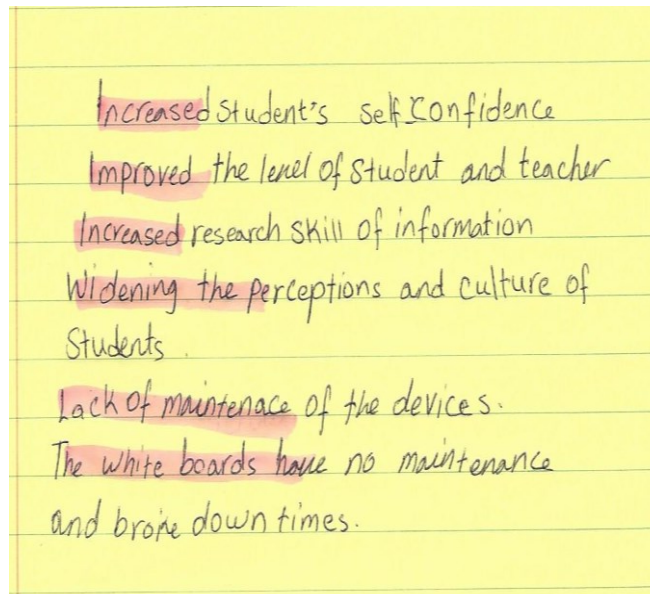 Increased Student's self confidence
Improved the level of student and teacher
Increased research skill of information
Widening the perceptions and culture of
Students.
Lack of maintenace of the devices.
The white boards have no maintenance
and broke down times.